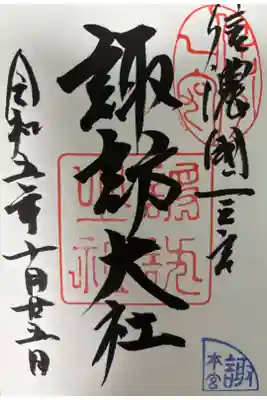 信濃國一之宮
諏訪大社
令和五年十月廿五日
一之宮
諏訪大社
諏訪
本宮